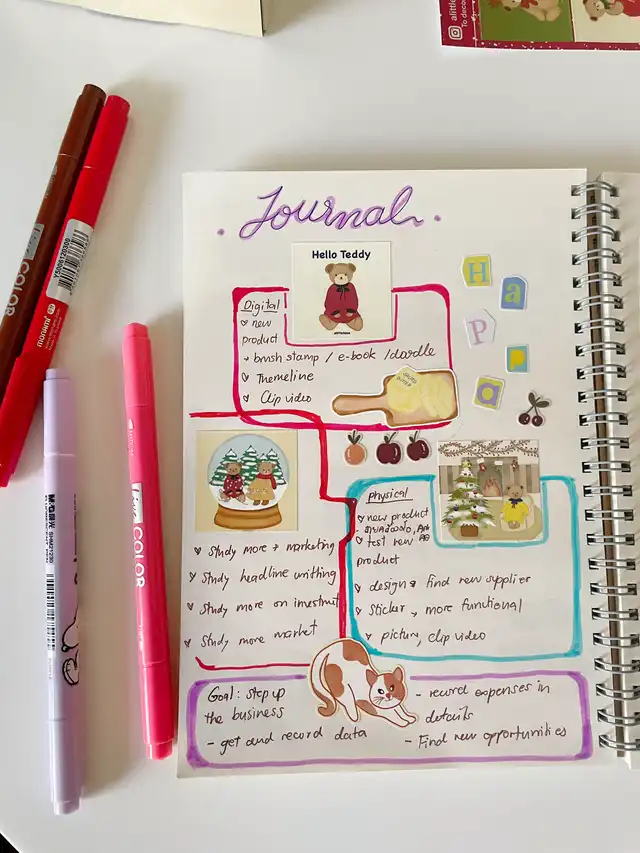 alittle
To decor
Journal
Hello Teddy
Digital
new
product
brush stamp / e-book / doodle
Themeline
Clip video
H
a
P
P
a
Physical
new product
test new
product
design & find new supplier
Sticker, more functional
picture, clip video
Study more → marketing
Study headline writhing
Study more on investment
Study more market
Goal: step up
the business
- get and record data
- record expenses in
details
- Find new opportunities
COLOR
Y5006120300
M&G
SHM21230
Line COLOR